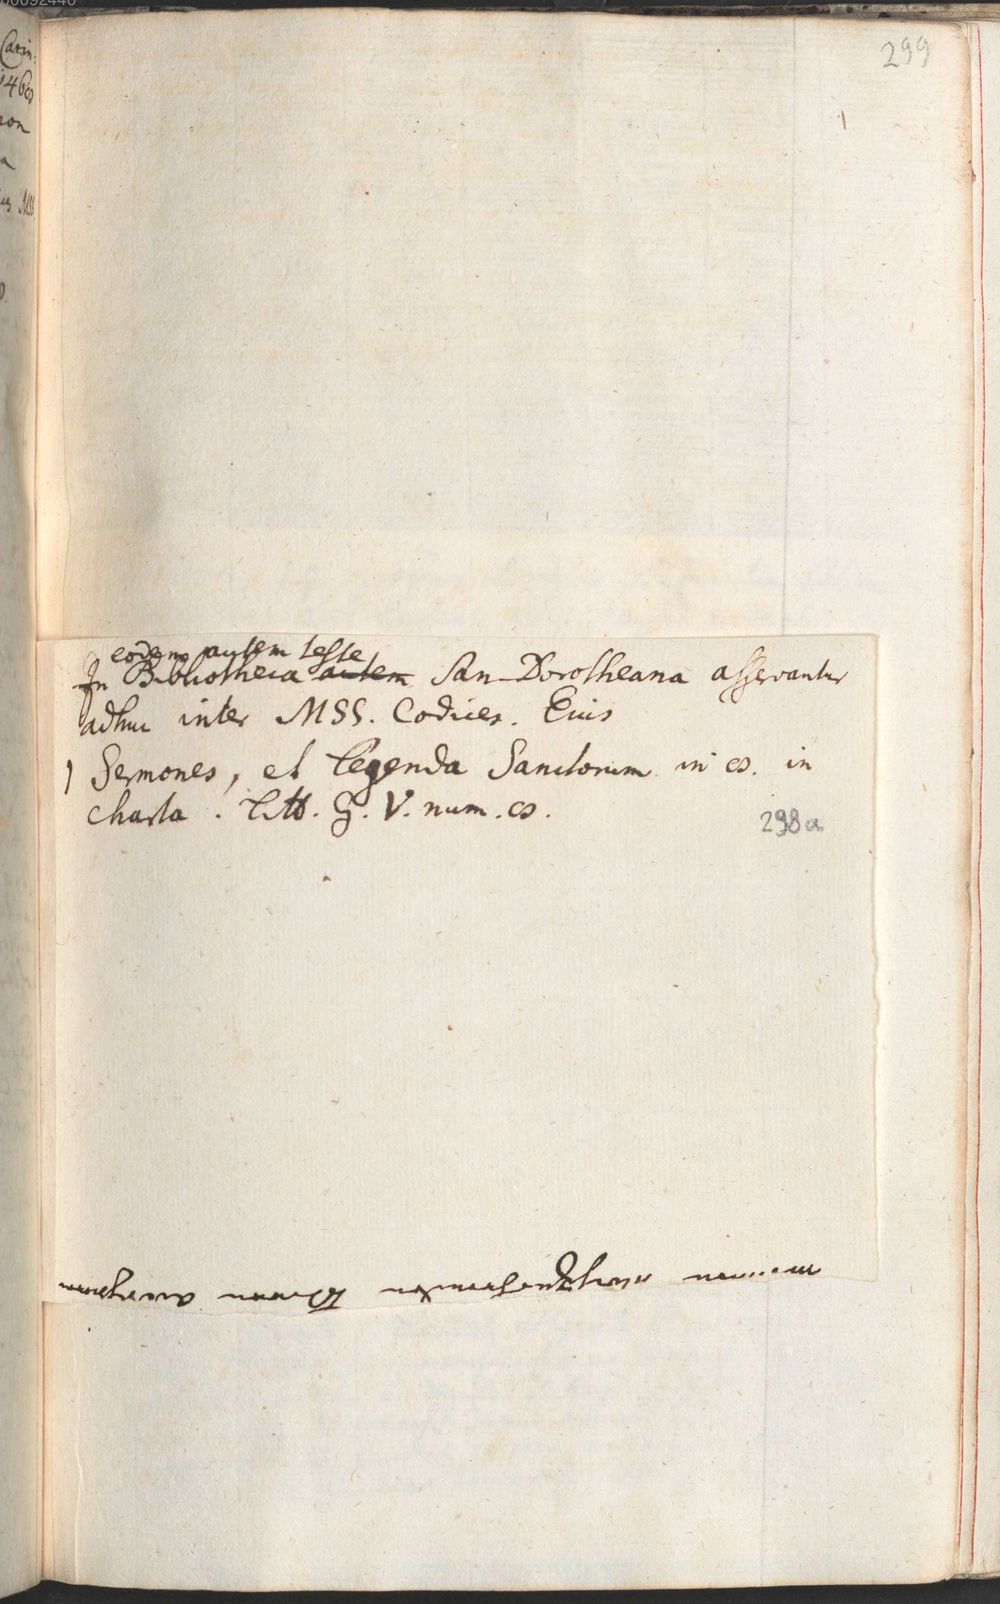 299
eodem autem teste
In Bibliotheca autem San-Dorotheana asservantur
adhuc inter MSS. Codices. Eius
1 Sermones, et Legenda Sanctorum in es. in
charta. Litt. G. V. num. es.
298a